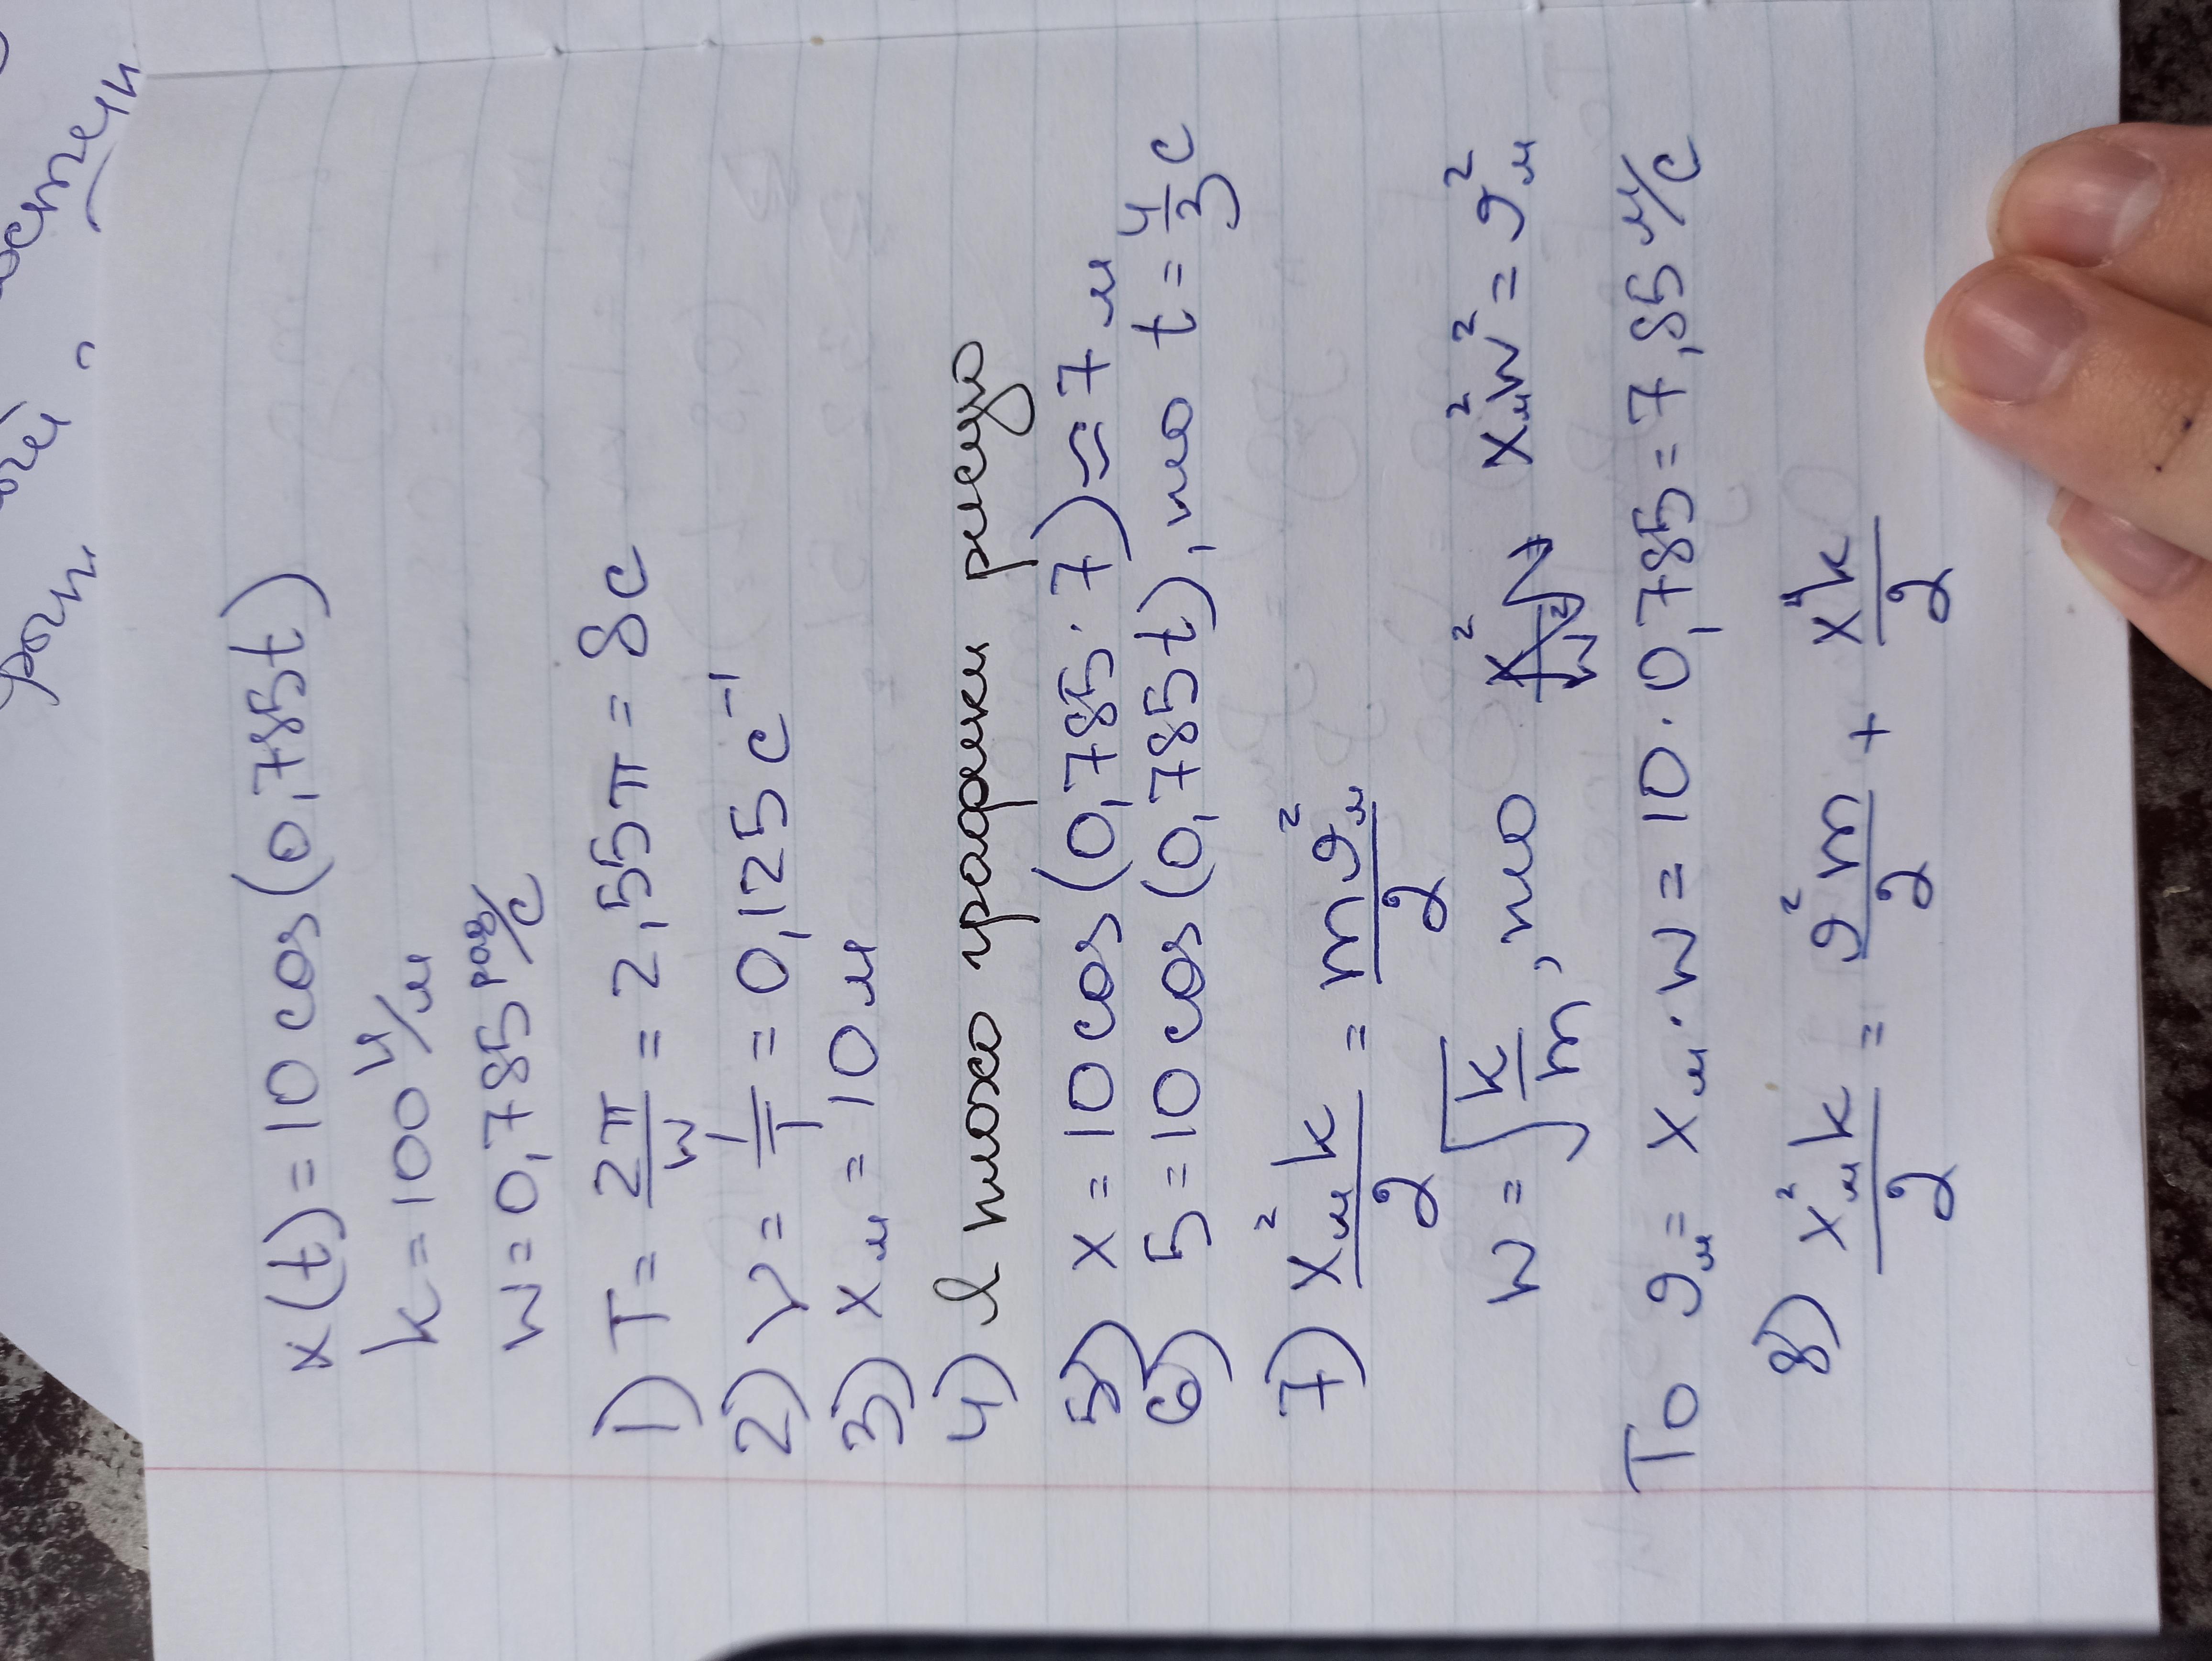 x(t) = 10 cos(0,785t)
k = 100 Н/м
w = 0,785 рад/с
1) T = 2π/w = 2,55π = 8c
2) ν = 1/T = 0,125 c⁻¹
3) xм = 10 м
4) плохо графики рисую
5) x = 10 cos(0,785·7) ≈ 7 м
6) 5 = 10 cos(0,785t), то t = 4/3 c
7) xм²k/2 = mϑм²/2
w = √(k/m), то xм²w² = ϑм²
То ϑм = xм·w = 10·0,785 = 7,85 м/с
8) xм²k/2 = ϑ²m/2 + x²k/2